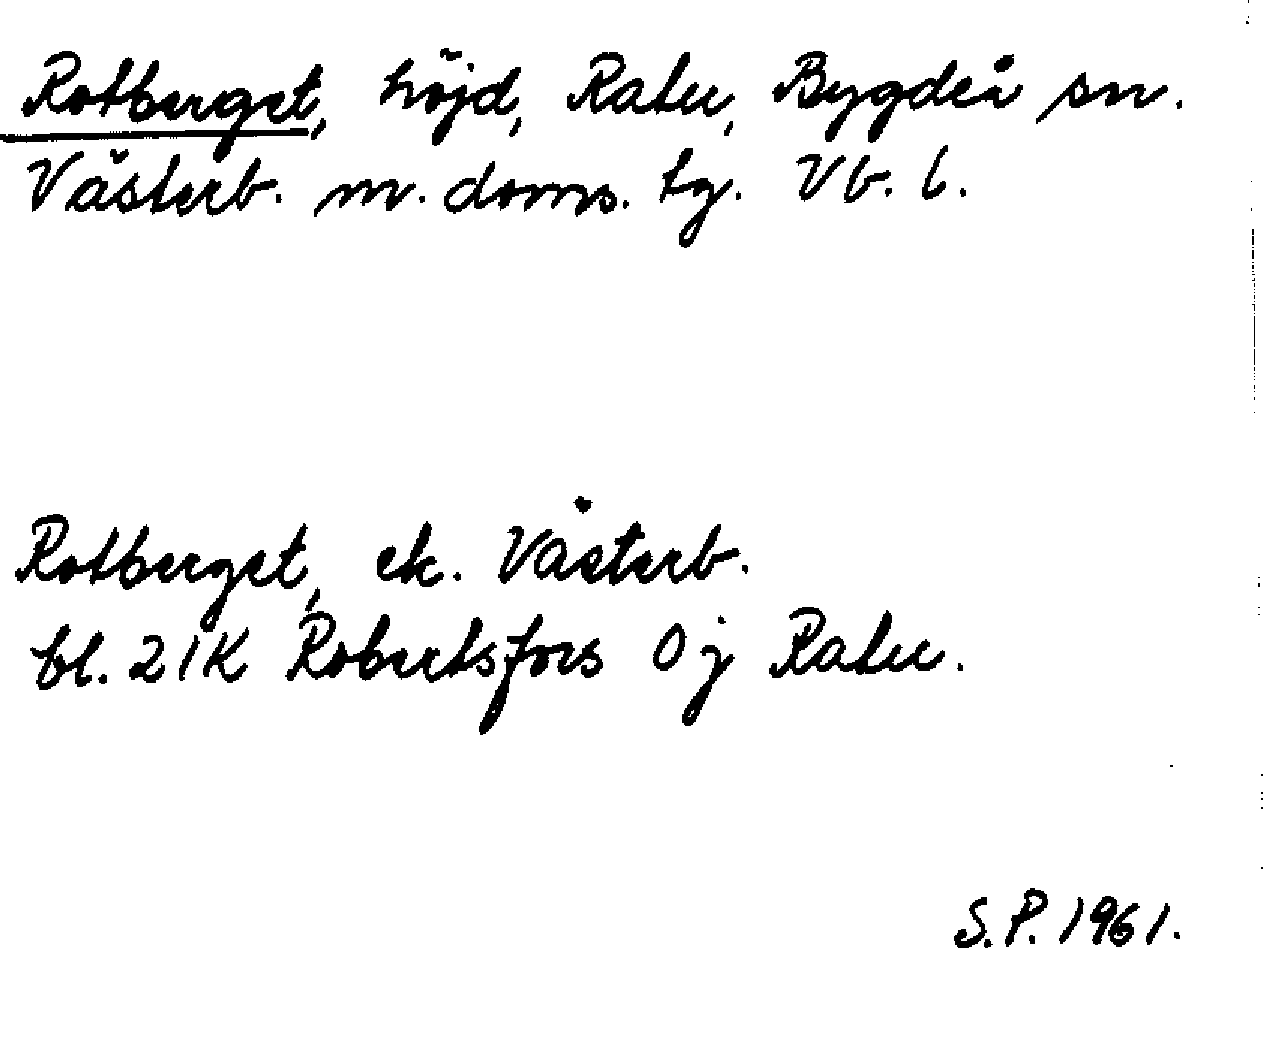 Rotberget, höjd, Ratu, Bygdeå sn.
Västerb. m. doms. tg. Vb. l.
Rotberget, ek. Västerb.
bl. 21K Robertsfors 0 j Ratu.
S.P. 1961.